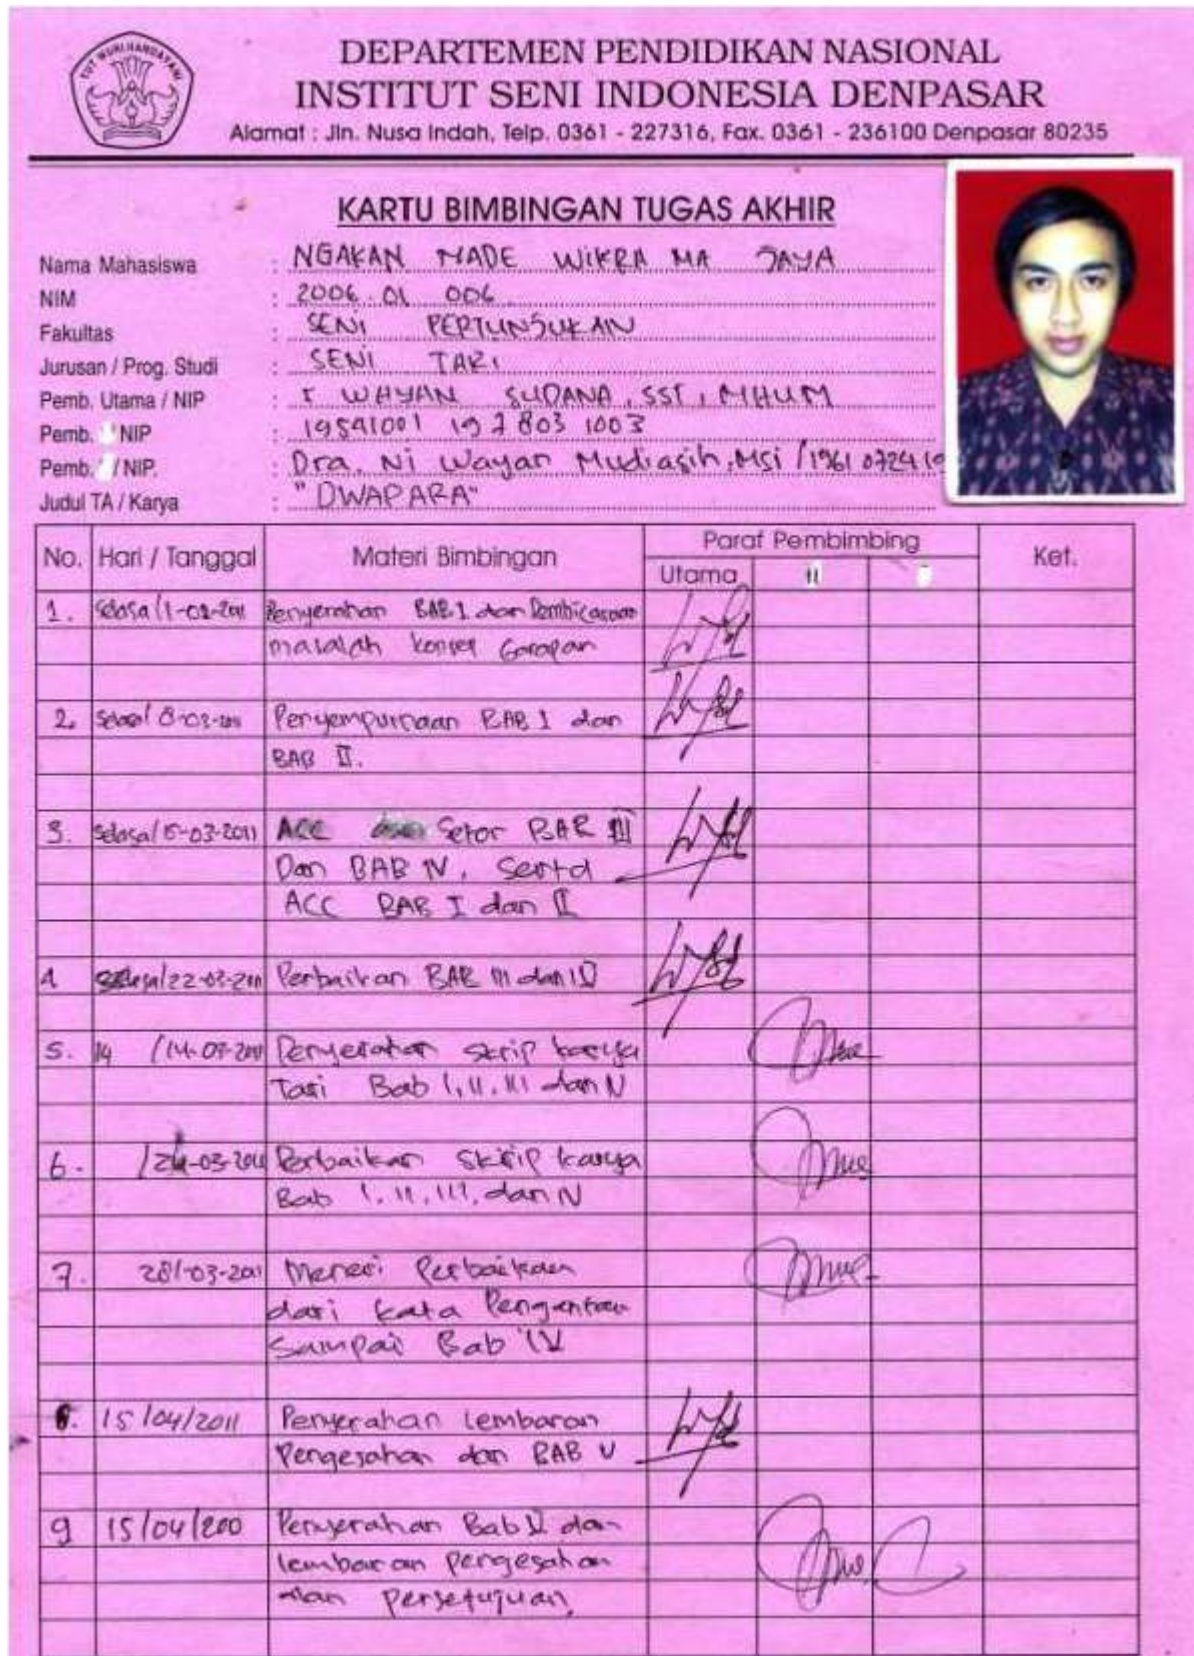 TUT WURI HANDAYANI
DEPARTEMEN PENDIDIKAN NASIONAL
INSTITUT SENI INDONESIA DENPASAR
Alamat : Jln. Nusa Indah, Telp. 0361 - 227316, Fax. 0361 - 236100 Denpasar 80235
KARTU BIMBINGAN TUGAS AKHIR
Nama Mahasiswa : NGAKAN MADE WIKRA MA JAYA
NIM : 2006.01 006
Fakultas : SENI PERTUNJUKAN
Jurusan / Prog. Studi : SENI TARI
Pemb. Utama / NIP : I WAYAN SUDANA, SST, MHUM
Pemb. NIP : 19541001 197803 1003
Pemb. / NIP. : Dra. Ni Wayan Mudiasih, MSi / 1961 0724 19
Judul TA / Karya : "DWAPARA"
No. Hari / Tanggal Materi Bimbingan Paraf Pembimbing Ket.
Utama II
1. Selasa / Penyerahan BAB I dan Pembicaraan
masalah konsep Garapan
2. Penyempurnaan BAB I dan
BAB II.
3. Selasa/15-03-2011 ACC Setor BAB III
Dan BAB IV, Serta
ACC BAB I dan II
4. Perbaikan BAB III dan IV
5. 14 Penyerahan skrip karya
Tari Bab I, II, III dan IV
6. Perbaikan Skrip karya
Bab I, II, III, dan IV
7. 28/-03-201 Perbaikan
dari kata Pengantar
Sampai Bab IV
8. 15/04/2011 Penyerahan lembaran
Pengesahan dan BAB V
9 15/04/200 Penyerahan Bab dan
lembaran pengesahan
dan persetujuan,